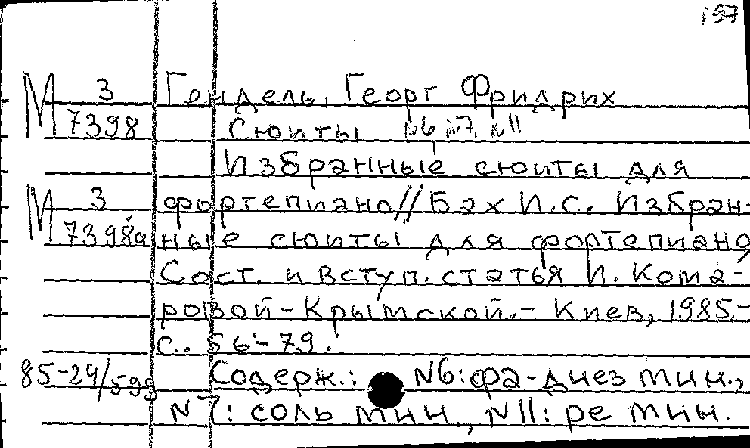 157
М 3
7398
Гендель, Георг Фридрих
Сюиты №6 №7 №11
Избранные сюиты для
М 3
7398а
фортепиано//Бах И.С. Избран-
ные сюиты для фортепиано
Сост. и вступ. статья И. Кома-
ровой-Крымской.- Киев, 1985.-
С.. 56-79.
85-24/599
Содерж.: №6: фа-диез мин.,
№7: соль мин., №11: ре мин.